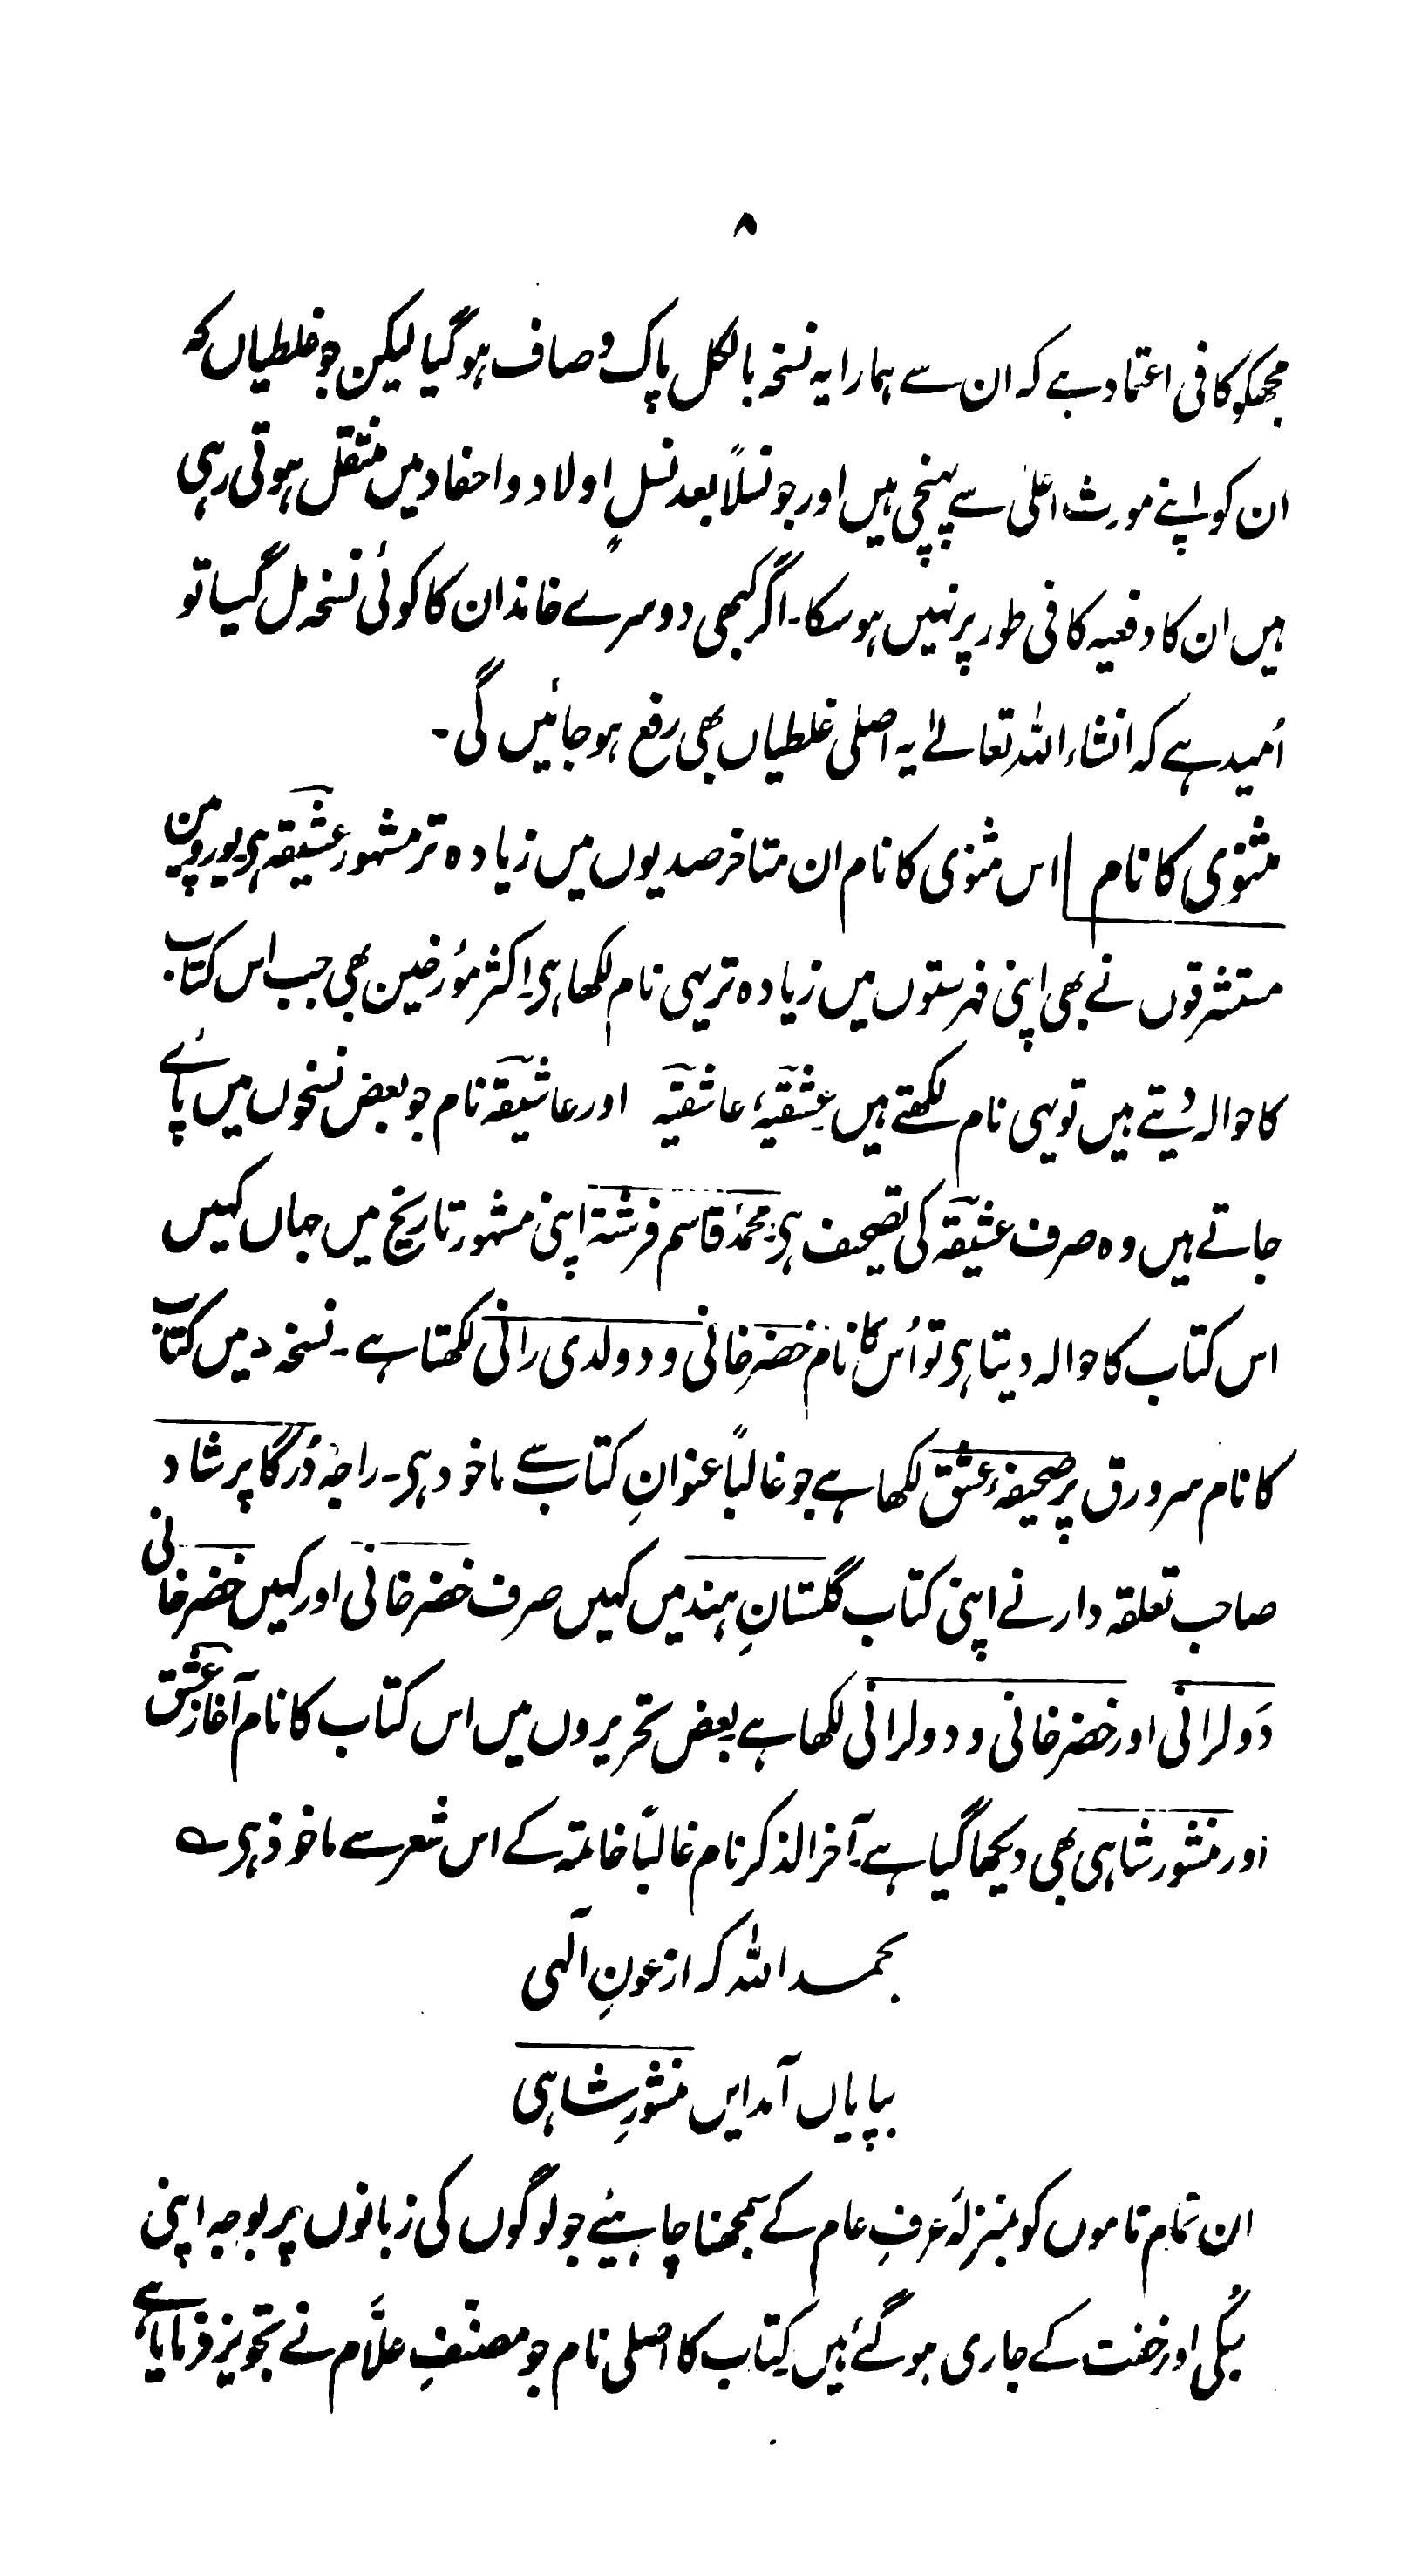 ۸
مجھکو کافی اعتماد ہے کہ ان سے ہمارا یہ نسخہ بالکل پاک و صاف ہو گیا لیکن جو غلطیاں کہ
ان کو اپنے مورث اعلیٰ سے پہنچی ہیں اور جو نسلاً بعد نسلٍ اولاد و احفاد میں منتقل ہوتی رہی
ہیں ان کا دفعیہ کافی طور پر نہیں ہو سکا۔ اگر کبھی دوسرے خاندان کا کوئی نسخہ مل گیا تو
اُمید ہے کہ انشاء اللہ تعالےٰ یہ اصلی غلطیاں بھی رفع ہو جائیں گی۔
مثنوی کا نام | اس مثنوی کا نام ان متاخر صدیوں میں زیادہ تر مشہور عشیقہ ہی۔ یوروپین
مستشرقوں نے بھی اپنی فہرستوں میں زیادہ تر یہی نام لکھا ہی۔ اکثر مؤرخین بھی جب اس کتاب
کا حوالہ دیتے ہیں تو یہی نام لکھتے ہیں عِشقیہ، عاشقیہ اور عاشیقہ نام جو بعض نسخوں میں پائے
جاتے ہیں وہ صرف عشیقہ کی تصحیف ہی۔ محمد قاسم فرشتہ اپنی مشہور تاریخ میں جہاں کہیں
اس کتاب کا حوالہ دیتا ہی تو اُس کا نام خضر خانی و دولدی رانی لکھتا ہے۔ نسخہ د میں کتاب
کا نام سرورق پر صحیفۂ عشق لکھا ہے جو غالباً عنوانِ کتاب سے ماخود ہی۔ راجہ دُرگا پرشاد
صاحب تعلقہ دار نے اپنی کتاب گلستانِ ہند میں کہیں صرف خضر خانی اور کہیں خضر خانی
دَولرانی اور خضر خانی و دولرانی لکھا ہے۔ بعض تحریروں میں اس کتاب کا نام آغاز عشق
اور منشور شاہی بھی دیکھا گیا ہے۔ آخر الذکر نام غالباً خاتمہ کے اس شعر سے ماخوذ ہی ؎
بحمد اللہ کہ از عونِ الٓہی
بپایاں آمد ایں منشورِ شاہی
ان تمام ناموں کو بمنزلۂ عرفِ عام کے سمجھنا چاہئیے جو لوگوں کی زبانوں پر بوجہ اپنی
سُبکی اور خفت کے جاری ہو گئے ہیں کتاب کا اصلی نام جو مصنّفِ علّام نے تجویز فرمایا ہے،